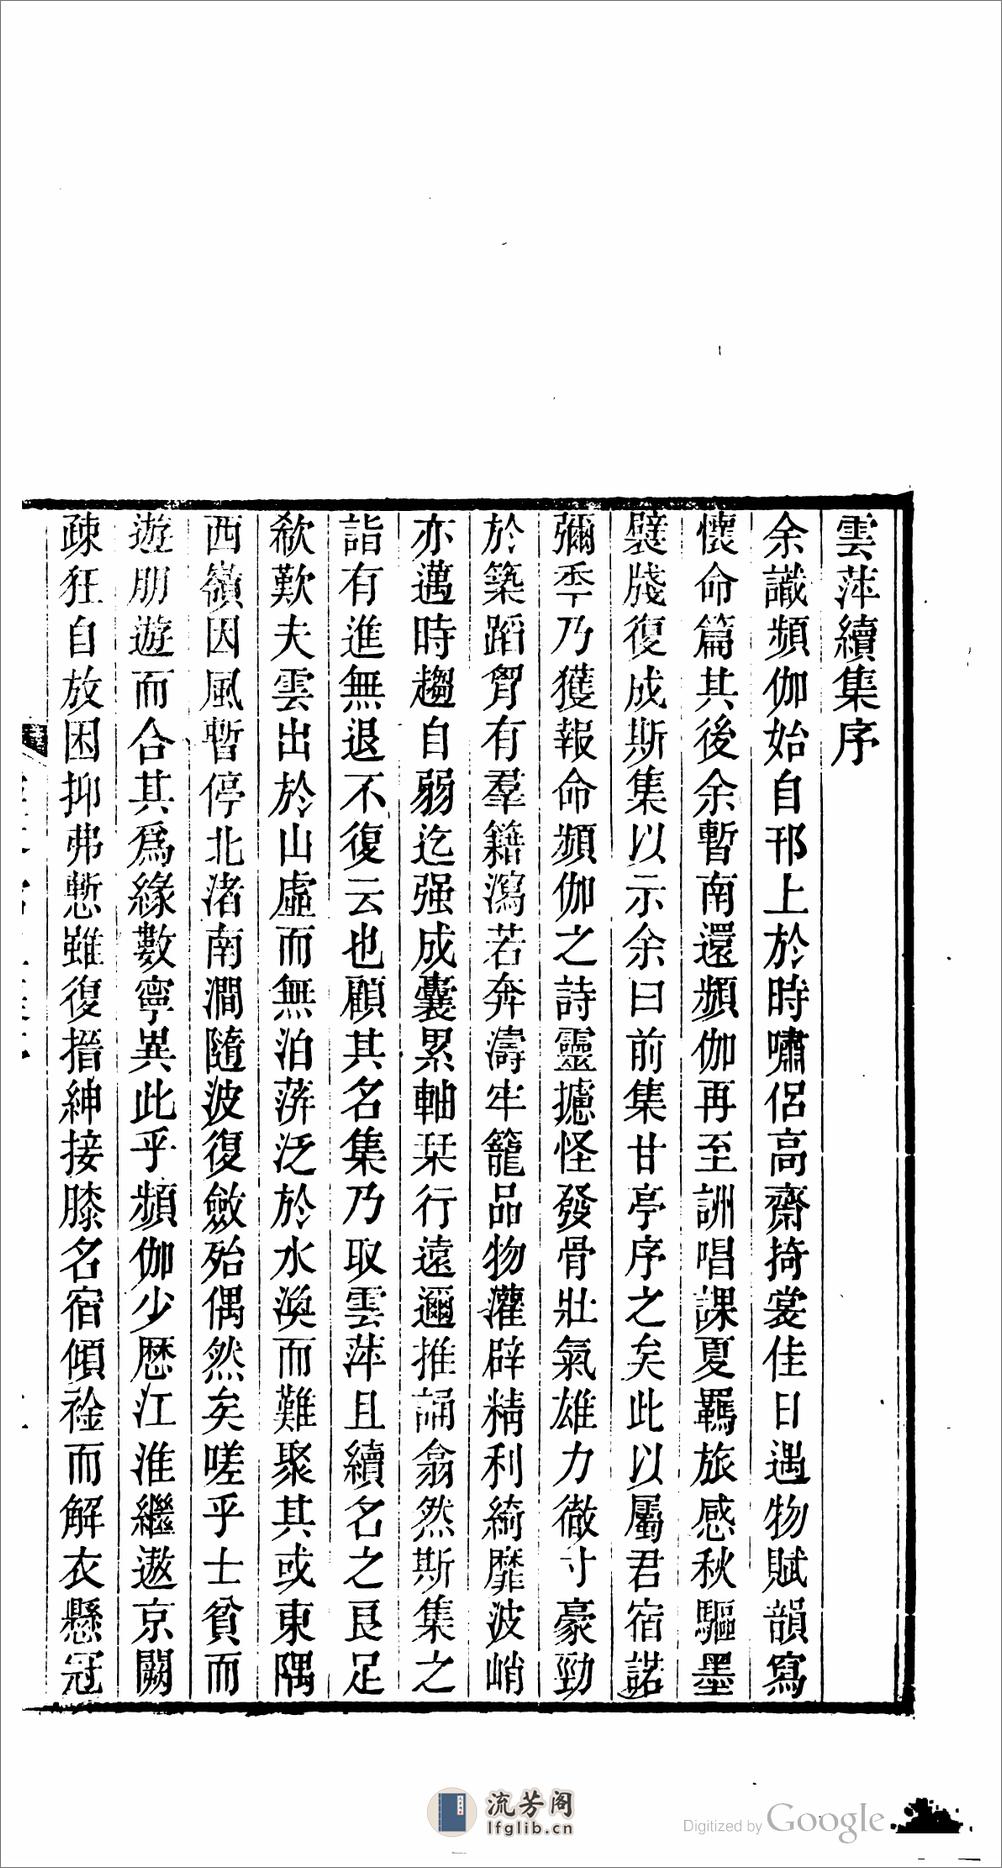 雲萍續集序
余識頻伽始自邗上於時嘯侶高齋掎裳佳日遇物賦韻寫
懷命篇其後余暫南還頻伽再至詶唱課夏羈旅感秋驅墨
襞牋復成斯集以示余曰前集甘亭序之矣此以屬君宿諾
彌季乃獲報命頻伽之詩靈攄怪發骨壯氣雄力徹寸豪勁
於築蹈胷有羣籍瀉若奔濤牢籠品物灌辟精利綺靡波峭
亦邁時趨自弱迄强成囊累軸琹行遠邇推誦翕然斯集之
詣有進無退不復云也顧其名集乃取雲萍且續名之良足
欷歎夫雲出於山虛而無泊萍泛於水渙而難聚其或東隅
西嶺因風暫停北渚南澗隨波復斂殆偶然矣嗟乎士貧而
遊朋遊而合其爲緣數寧異此乎頻伽少歷江淮繼遨京闕
疎狂自放困抑弗慙雖復搢紳接膝名宿傾襟而解衣懸冠
流芳阁
lfglib.cn
Digitized by Google